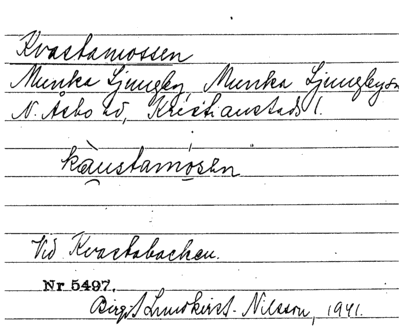 Kvastamossen
Munka Ljungby, Munka Ljungby sn
N. Åsbo hd, Kristianstads l.
Vid Kvastabacken.
Nr 5497.
Birgit Lundkvist-Nilsson, 1941.